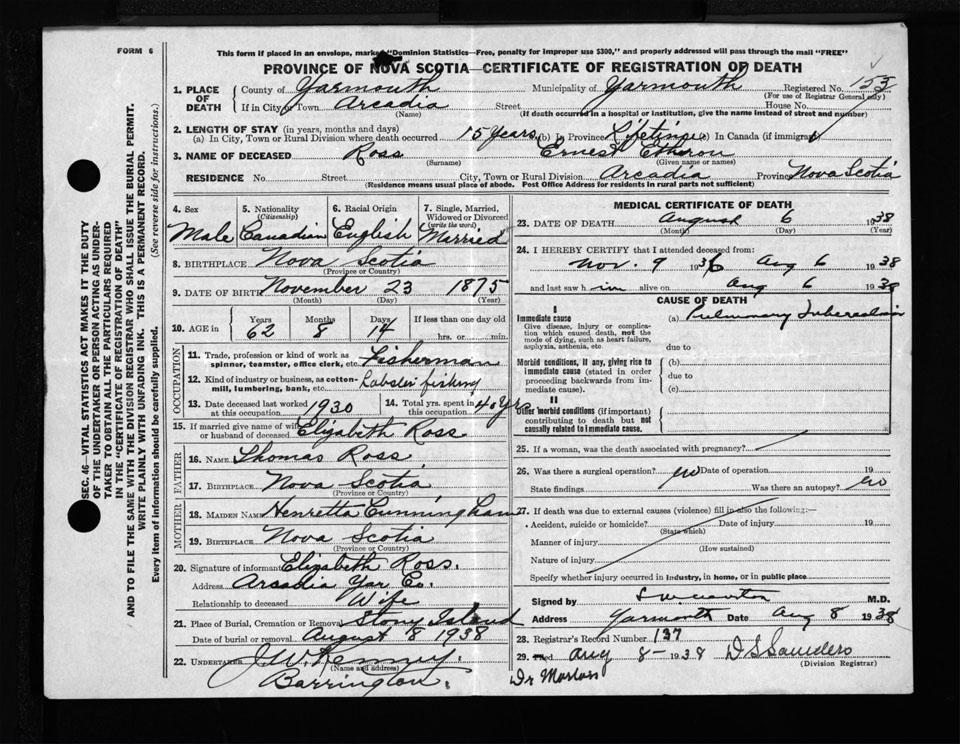 FORM 6
This form if placed in an envelope, marked "Dominion Statistics—Free, penalty for improper use $300," and properly addressed will pass through the mail "FREE"
PROVINCE OF NOVA SCOTIA—CERTIFICATE OF REGISTRATION OF DEATH
1. PLACE OF DEATH County of Yarmouth Municipality of Yarmouth Registered No. 153
(For use of Registrar General only)
If in City or Town Arcadia Street House No.
(Name) (If death occurred in a hospital or institution, give the name instead of street and number)
2. LENGTH OF STAY (in years, months and days)
(a) In City, Town or Rural Division where death occurred 15 years (b) In Province Lifetime (c) In Canada (if immigrant)
3. NAME OF DECEASED Ross Ernest
(Surname) (Given name or names)
RESIDENCE No. Street City, Town or Rural Division Arcadia Province Nova Scotia
(Residence means usual place of abode. Post Office Address for residents in rural parts not sufficient)
4. Sex Male
5. Nationality (Citizenship) Canadian
6. Racial Origin English
7. Single, Married, Widowed or Divorced (write the word) Married
8. BIRTHPLACE Nova Scotia
(Province or Country)
9. DATE OF BIRTH November 23 1875
(Month) (Day) (Year)
10. AGE in Years 62 Months 8 Days 14 If less than one day old hrs. or min.
OCCUPATION
11. Trade, profession or kind of work as spinner, teamster, office clerk, etc. Fisherman
12. Kind of industry or business, as cotton-mill, lumbering, bank, etc. Lobster fishing
13. Date deceased last worked at this occupation 1930
14. Total yrs. spent in this occupation 40 yrs
15. If married give name of wife or husband of deceased Elizabeth Ross
FATHER
16. NAME Thomas Ross
17. BIRTHPLACE Nova Scotia
(Province or Country)
MOTHER
18. MAIDEN NAME Henretta Cunningham
19. BIRTHPLACE Nova Scotia
(Province or Country)
20. Signature of informant Elizabeth Ross.
Address Arcadia Yar Co.
Relationship to deceased Wife
21. Place of Burial, Cremation or Removal Stony Island
Date of burial or removal August 8 1938
22. UNDERTAKER J. W. Kenney.
(Name and address)
Barrington.
MEDICAL CERTIFICATE OF DEATH
23. DATE OF DEATH August 6 1938
(Month) (Day) (Year)
24. I HEREBY CERTIFY that I attended deceased from:
Nov. 9 1936 Aug 6 1938
and last saw him alive on Aug 6 1938
CAUSE OF DEATH
I
Immediate cause (a) Pulmonary Tuberculosis
Give disease, injury or complication which caused death, not the mode of dying, such as heart failure, asphyxia, asthenia, etc
due to
Morbid conditions, if any, giving rise to immediate cause (stated in order proceeding backwards from immediate cause). (b)
due to
(c)
II
Other morbid conditions (if important) contributing to death but not causally related to immediate cause.
25. If a woman, was the death associated with pregnancy?
26. Was there a surgical operation? no Date of operation 19
State findings Was there an autopsy? no
27. If death was due to external causes (violence) fill in also the following:—
Accident, suicide or homicide? Date of injury 19
(State which)
Manner of injury
(How sustained)
Nature of injury
Specify whether injury occurred in industry, in home, or in public place
Signed by M.D.
Address Yarmouth Date Aug 8 1938
28. Registrar's Record Number 137
29. Filed Aug 8- 1938 D S Saunders
(Division Registrar)
Dr
SEC. 46—VITAL STATISTICS ACT MAKES IT THE DUTY
OF THE UNDERTAKER OR PERSON ACTING AS UNDER-
TAKER TO OBTAIN ALL THE PARTICULARS REQUIRED
IN THE "CERTIFICATE OF REGISTRATION OF DEATH"
AND TO FILE THE SAME WITH THE DIVISION REGISTRAR WHO SHALL ISSUE THE BURIAL PERMIT.
WRITE PLAINLY WITH UNFADING INK. THIS IS A PERMANENT RECORD.
Every item of information should be carefully supplied. (See reverse side for instructions.)